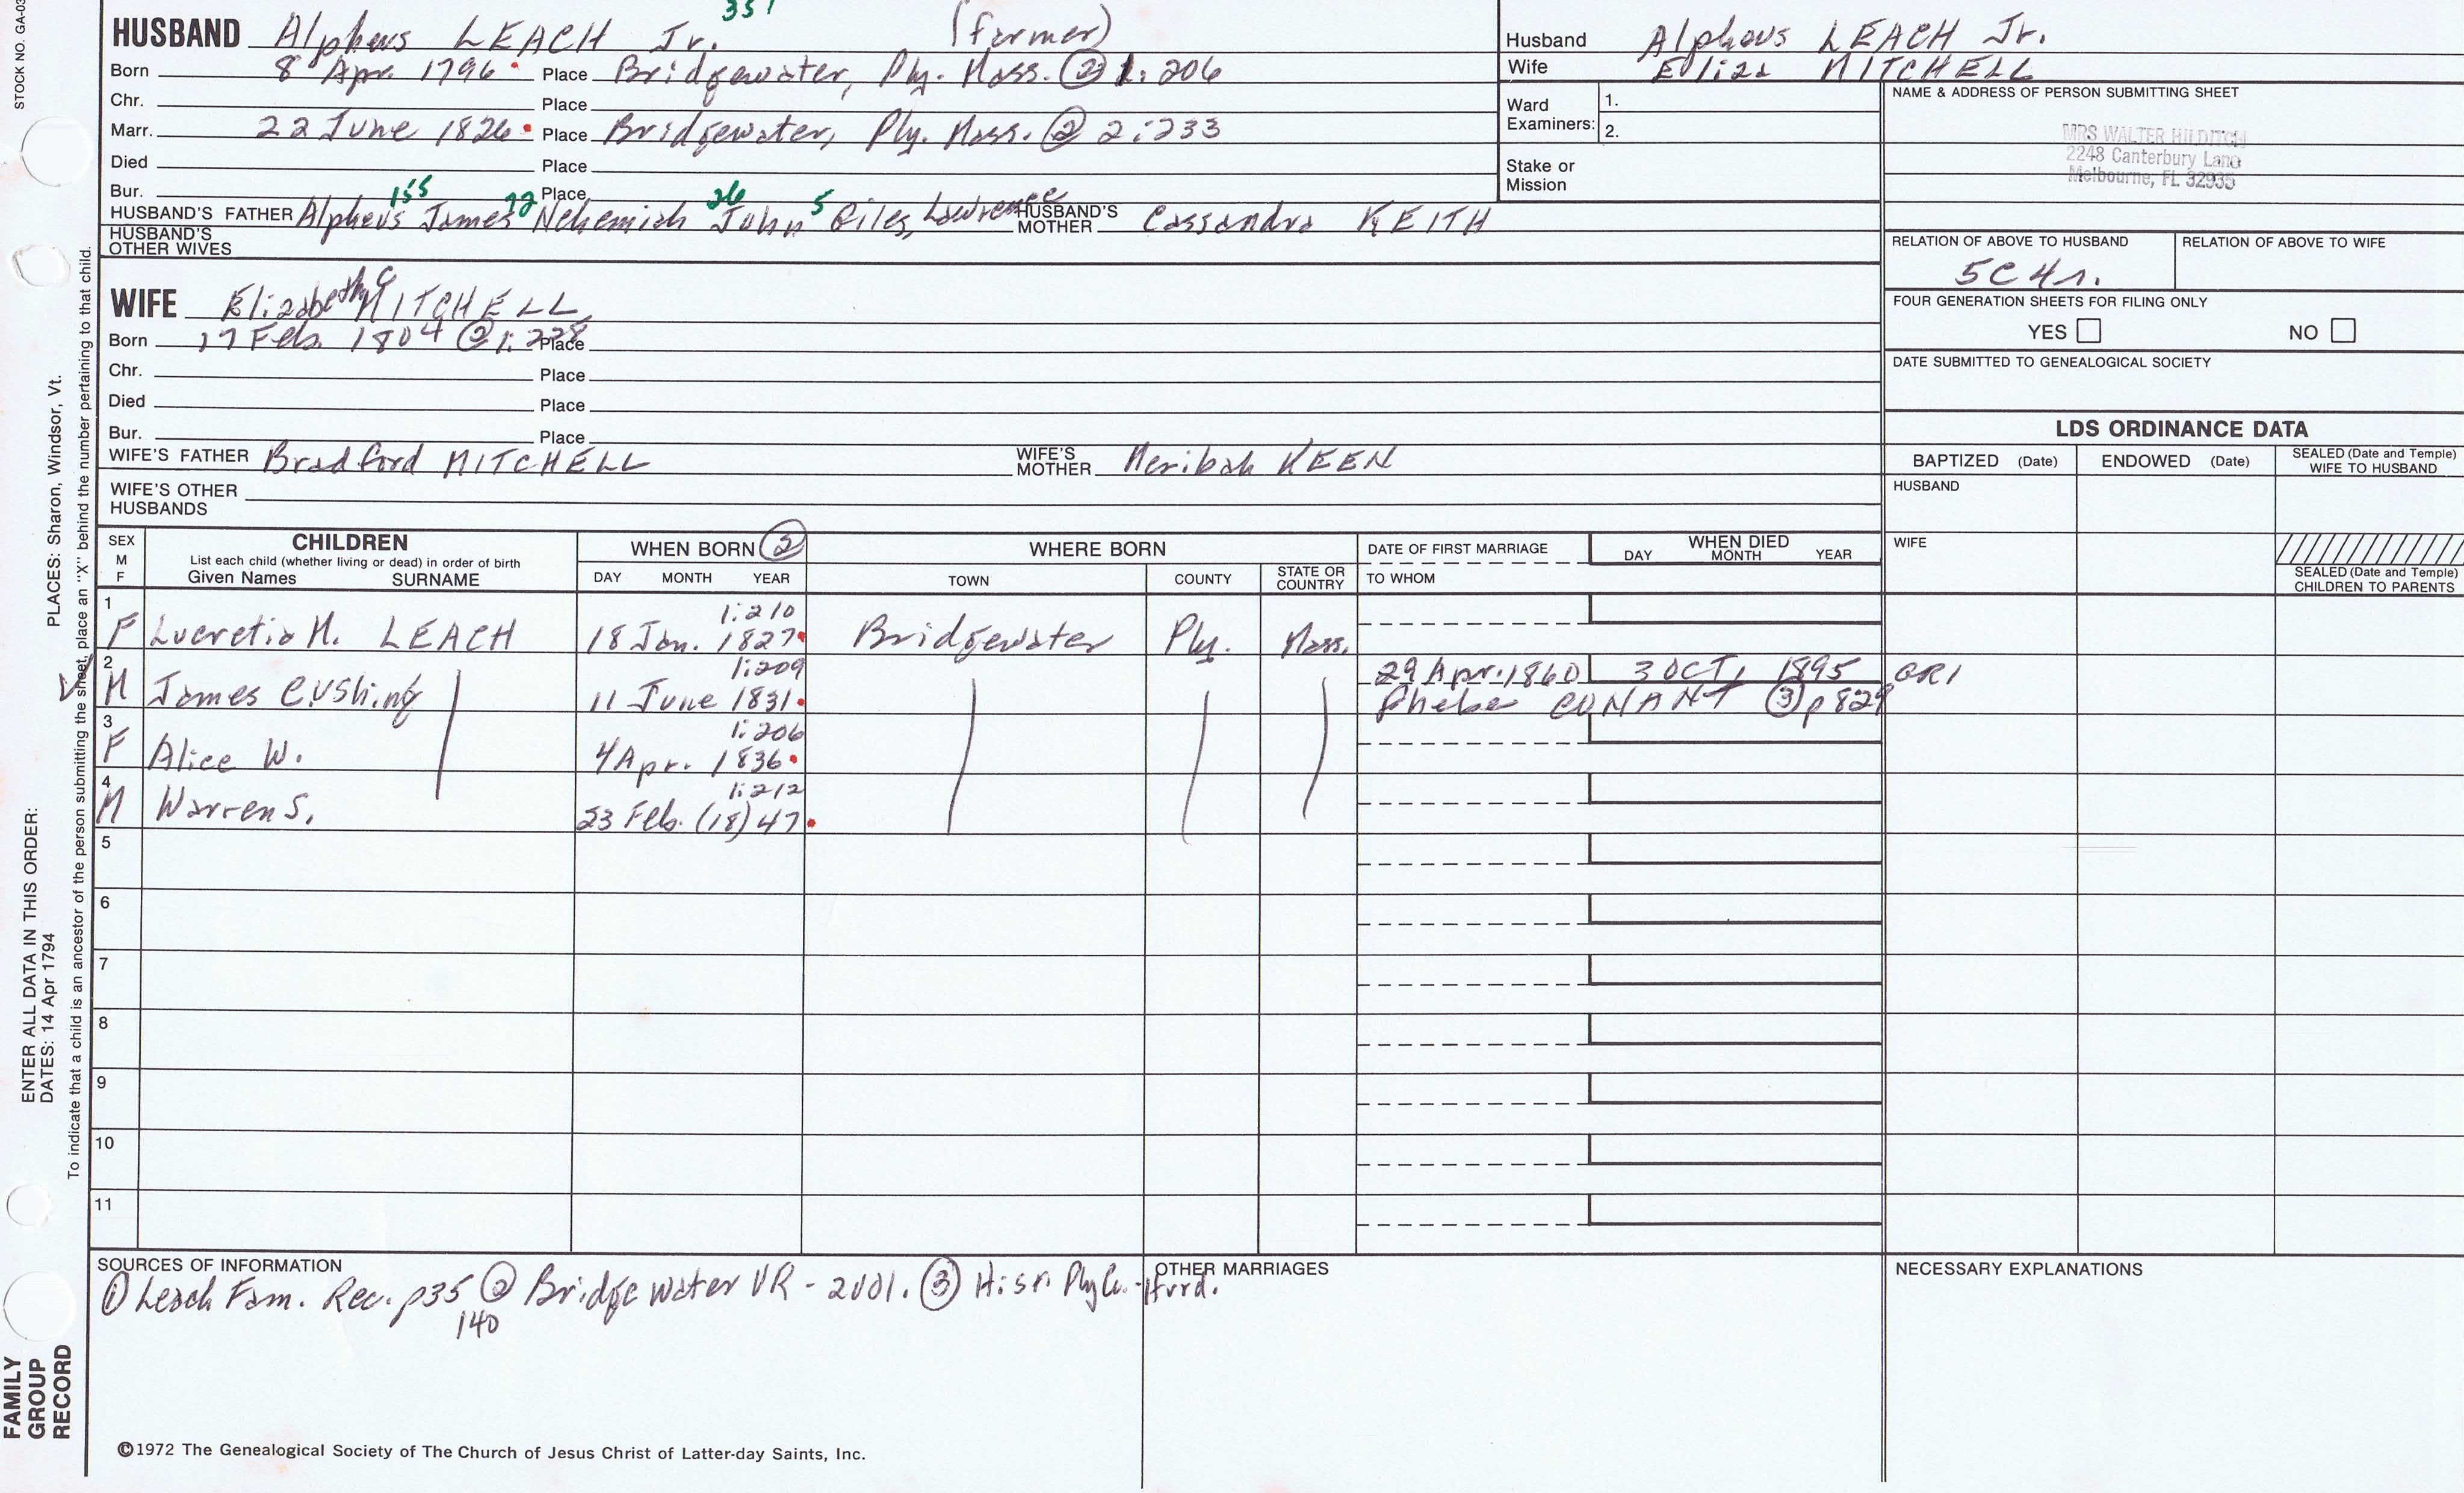 STOCK NO. GA-03
351
HUSBAND Alpheus LEACH Jr. (farmer)
Born 8 Apr. 1796 Place Bridgewater, Ply. Mass. ② 1:206
Chr. Place
Marr. 22 June 1826 Place Bridgewater, Ply. Mass. ② 2:233
Died Place
Bur. Place
155 72 26 5
HUSBAND'S FATHER Alpheus James Nehemiah John Giles, Lawrence HUSBAND'S MOTHER Cassandra KEITH
HUSBAND'S OTHER WIVES
Husband Alpheus LEACH Jr.
Wife Eliza MITCHELL
Ward Examiners: 1.
2.
Stake or Mission
NAME & ADDRESS OF PERSON SUBMITTING SHEET
MRS WALTER HILDITCH
2248 Canterbury Lane
Melbourne, FL 32935
RELATION OF ABOVE TO HUSBAND RELATION OF ABOVE TO WIFE
5C4r.
FOUR GENERATION SHEETS FOR FILING ONLY
YES NO
DATE SUBMITTED TO GENEALOGICAL SOCIETY
WIFE Elizabeth C MITCHELL
Born 17 Feb. 1804 ② 1:228 Place
Chr. Place
Died Place
Bur. Place
WIFE'S FATHER Bradford MITCHELL WIFE'S MOTHER Meribah KEEN
WIFE'S OTHER HUSBANDS
LDS ORDINANCE DATA
BAPTIZED (Date) ENDOWED (Date) SEALED (Date and Temple) WIFE TO HUSBAND
HUSBAND
WIFE
SEALED (Date and Temple) CHILDREN TO PARENTS
SEX M F CHILDREN WHEN BORN ② WHERE BORN DATE OF FIRST MARRIAGE WHEN DIED
List each child (whether living or dead) in order of birth
Given Names SURNAME DAY MONTH YEAR TOWN COUNTY STATE OR COUNTRY TO WHOM DAY MONTH YEAR
1 1:210
F Lucretia M. LEACH 18 Jan. 1827 Bridgewater Ply. Mass.
2 1:209 29 Apr. 1860 3 OCT, 1895 GR1
M James Cushing 11 June 1831 Phebe CONANT ③ p829
3 1:206
F Alice W. 4 Apr. 1836
4 1:212
M Warren S. 23 Feb. (18)47
5
6
7
8
9
10
11
SOURCES OF INFORMATION
① Leach Fam. Rec. p35 ② Bridgewater VR - 2vol. ③ Hist. Ply Co. - Hurd.
140
OTHER MARRIAGES
NECESSARY EXPLANATIONS
©1972 The Genealogical Society of The Church of Jesus Christ of Latter-day Saints, Inc.
FAMILY
GROUP
RECORD
ENTER ALL DATA IN THIS ORDER:
DATES: 14 Apr 1794
PLACES: Sharon, Windsor, Vt.
To indicate that a child is an ancestor of the person submitting the sheet, place an "X" behind the number pertaining to that child.